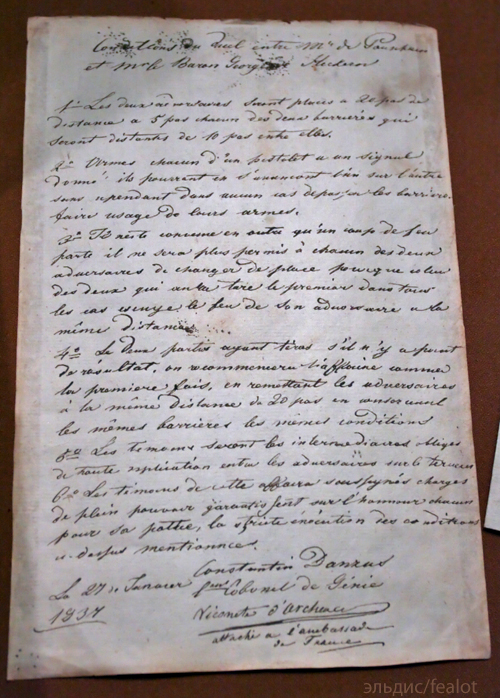 Conditions du duel entre Mr de Pouchkin
et Mr le Baron Georges Heckern
1º Les deux adversaires seront placés à 20 pas de
distance à 5 pas chacun des deux barrières qui
seront distantes de 10 pas entre elles.
2º Armés chacun d'un pistolet à un signal
donné ils pourront en s'avançant l'un sur l'autre
sans cependant dans aucun cas dépasser les barrières
faire usage de leurs armes.
3º Il reste convenu en outre qu'un coup de feu
parti il ne sera plus permis à chacun des deux
adversaires de changer de place pour que celui
des deux qui aura tiré le premier dans tous
les cas essuye le feu de son adversaire à la
même distance.
4º Les deux parties ayant tirés s'il n'y a point
de résultat, on recommencera l'affaire comme
la première fois, en remettant les adversaires
à la même distance de 20 pas en conservant
les mêmes barrières les mêmes conditions
5º Les témoins seront les intermédiaires obligés
de toute explication entre les adversaires sur le terrein
6º Les témoins de cette affaire soussignés chargés
de plein pouvoir garantissent sur l'honneur chacun
pour sa partie, la stricte exécution des conditions
ci-dessus mentionnées.
Constantin Danzas
Le 27 Janvier Lieut. Colonel de Génie
1837 Vicomte d'Archiac
attaché à l'ambassade
de France
эльдис/fealot